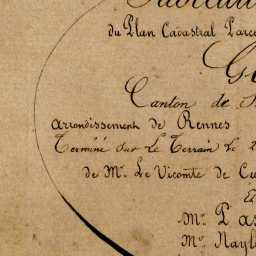 Tableau
du Plan Cadastral Parce
Canton de
arrondissement de Rennes
Terminé sur le Terrain le
de Mr. Le Vicomte de Cu
Mr. Pas
Mr. Nayl